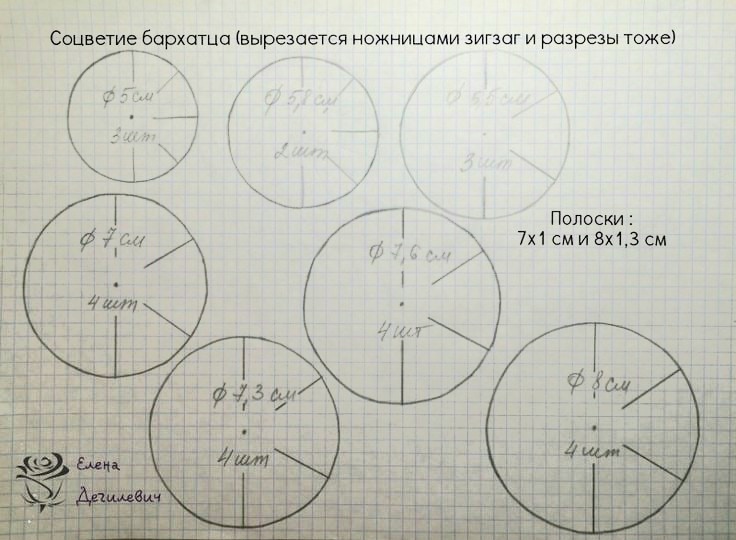 Соцветие бархатца (вырезается ножницами зигзаг и разрезы тоже)
ф 5 см
3 шт
ф 5,8 см
2 шт
3 шт
Полоски :
7х1 см и 8х1,3 см
ф 7 см
4 шт
ф 7,6 см
4 шт
ф 7,3 см
4 шт
ф 8 см
4 шт
Елена
Дегилевич